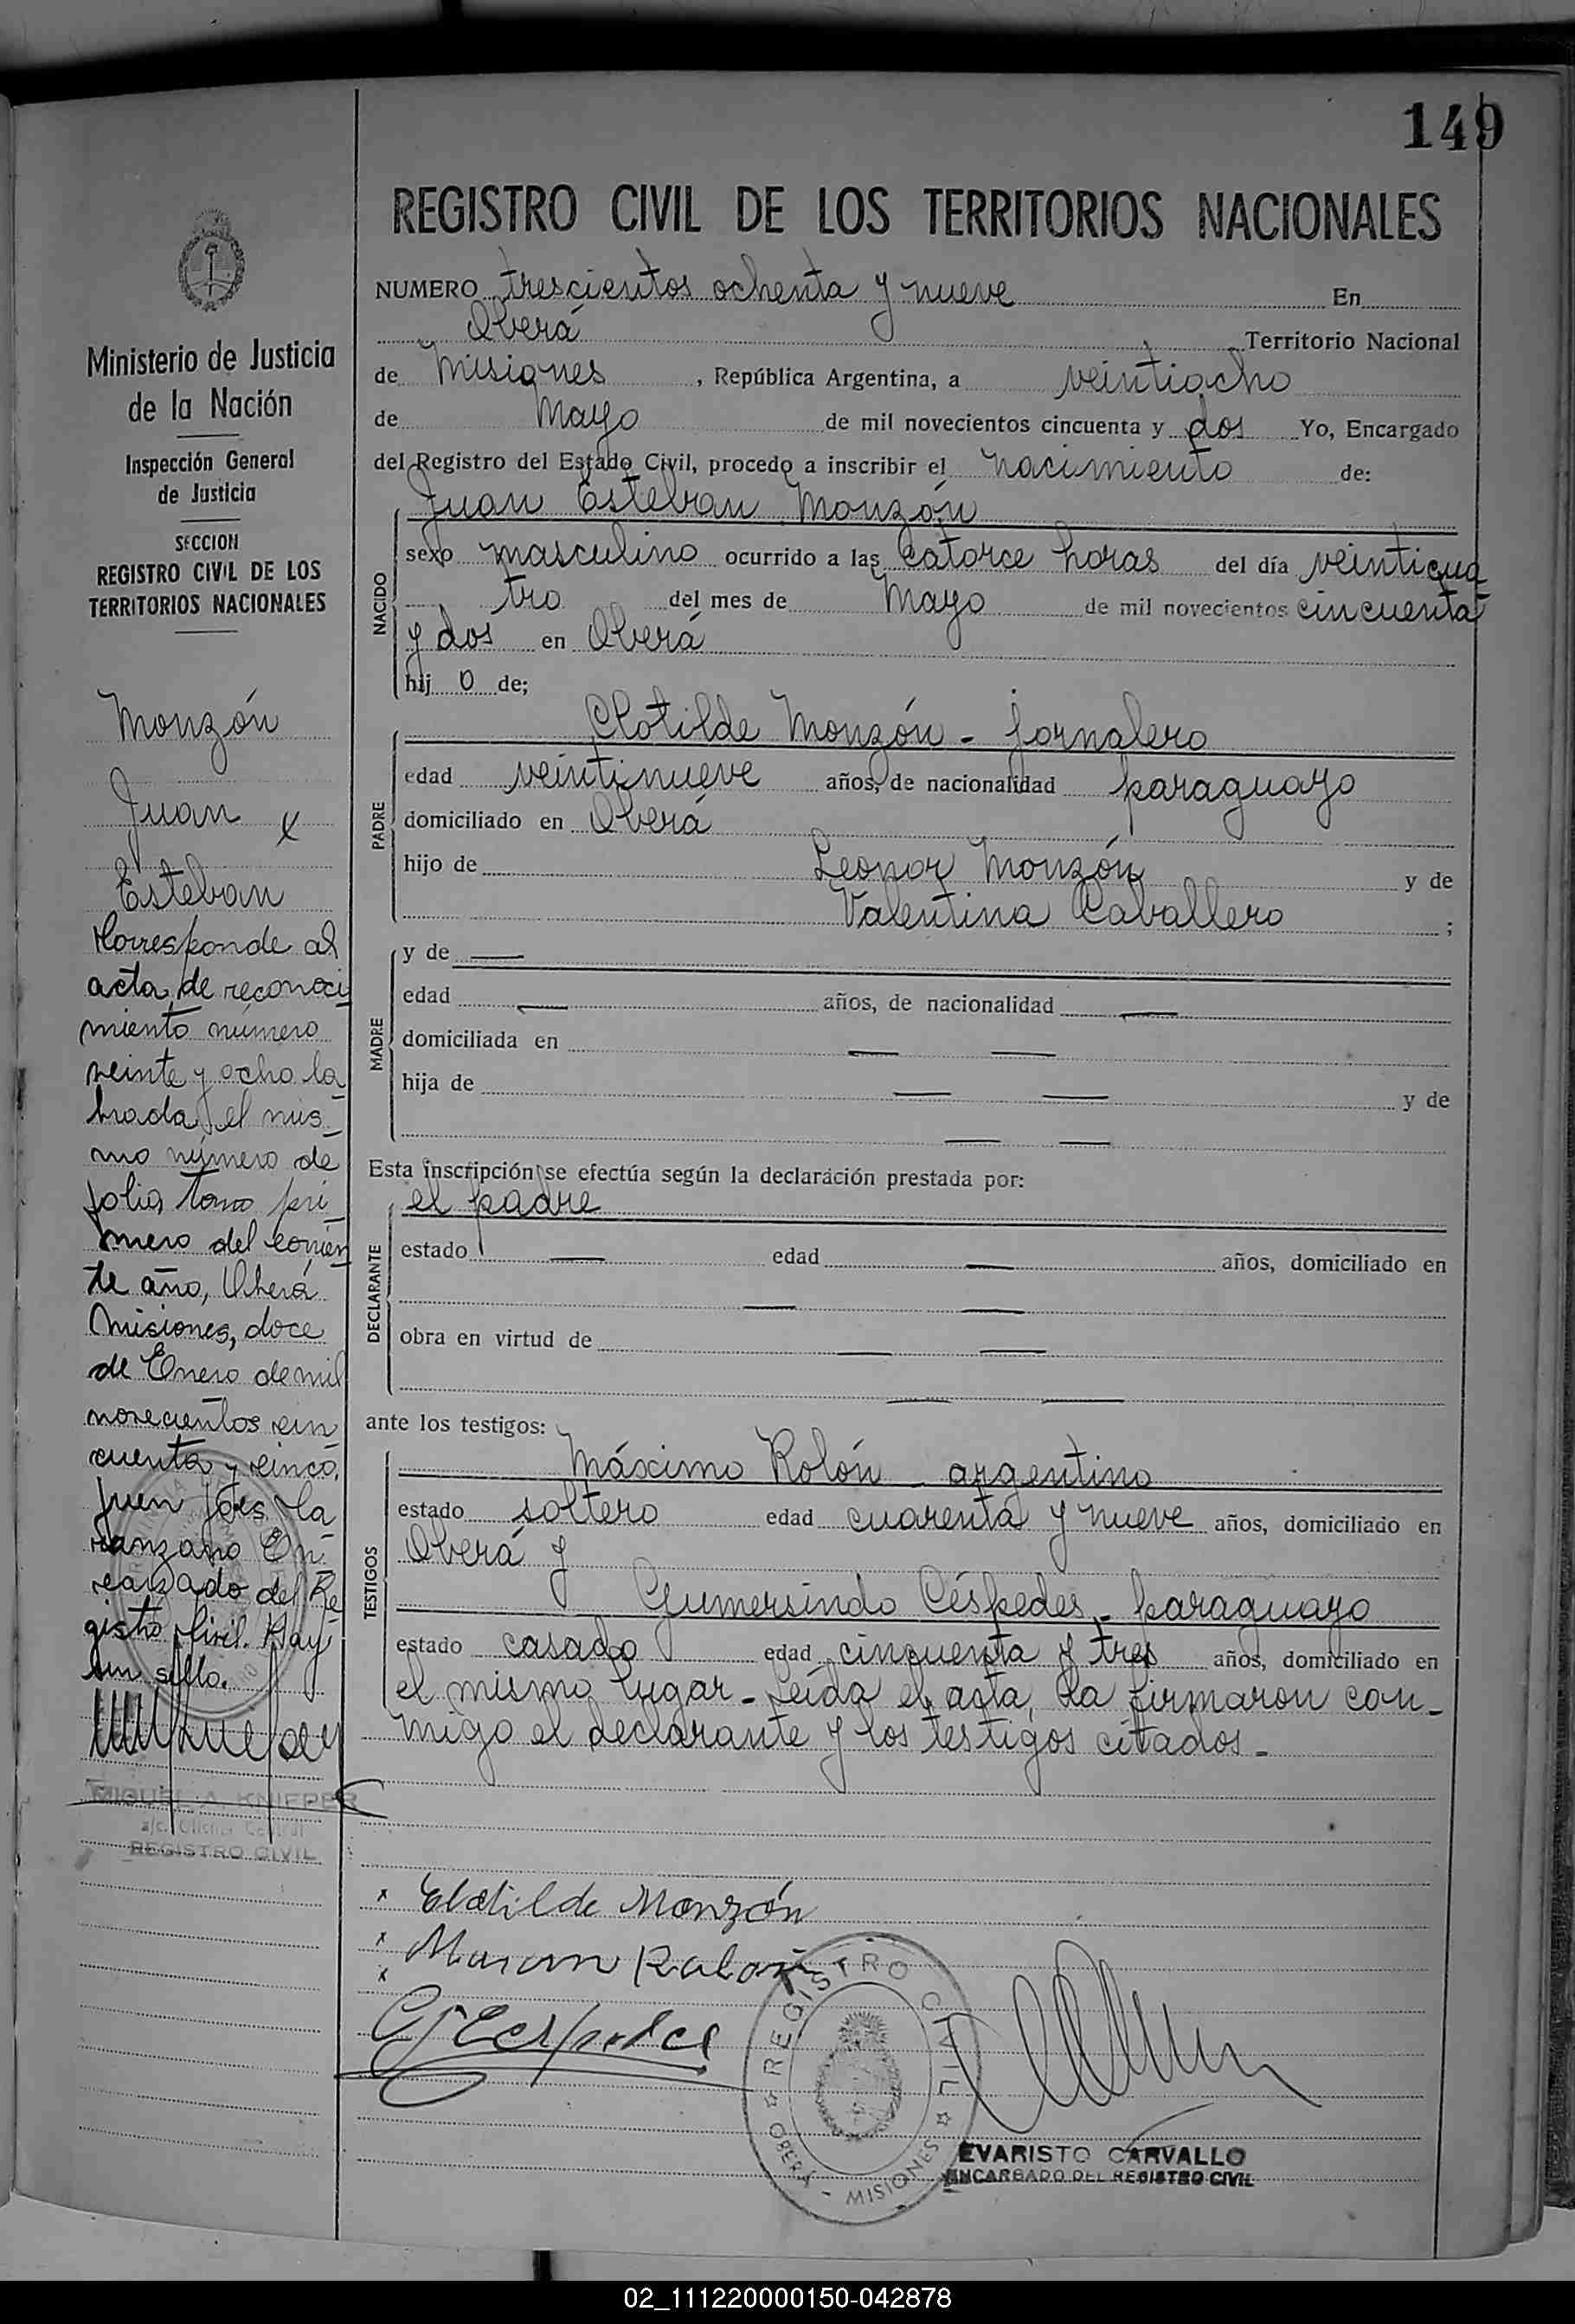 149
REGISTRO CIVIL DE LOS TERRITORIOS NACIONALES
NUMERO trescientos ochenta y nueve En
Oberá Territorio Nacional
de Misiones, República Argentina, a veintiocho
de Mayo de mil novecientos cincuenta y dos Yo, Encargado
del Registro del Estado Civil, procedo a inscribir el nacimiento de:
Juan Esteban Monzón
NACIDO
sexo masculino ocurrido a las catorce horas del día veinticua
tro del mes de Mayo de mil novecientos cincuenta
y dos en Oberá
hij o de;
PADRE
Clotilde Monzón - jornalero
edad veintinueve años, de nacionalidad paraguayo
domiciliado en Oberá
hijo de Leonor Monzón y de
Valentina Caballero ;
MADRE
y de —
edad — años, de nacionalidad —
domiciliada en — —
hija de — — y de
— —
Esta inscripción se efectúa según la declaración prestada por:
DECLARANTE
el padre
estado — edad — años, domiciliado en
— —
obra en virtud de — —
— —
ante los testigos:
TESTIGOS
Máximo Rolón - argentino
estado soltero edad cuarenta y nueve años, domiciliado en
Oberá y
Gumersindo Céspedes - paraguayo
estado casado edad cincuenta y tres años, domiciliado en
el mismo lugar - Leída el acta, la firmaron con-
migo el declarante y los testigos citados -
x Clotilde Monzón
x
x
REGISTRO CIVIL
OBERÁ - MISIONES
EVARISTO CARVALLO
ENCARGADO DEL REGISTRO CIVIL
Ministerio de Justicia
de la Nación
Inspección General
de Justicia
SECCION
REGISTRO CIVIL DE LOS
TERRITORIOS NACIONALES
Monzón
Juan x
Esteban
Corresponde al
acta de reconoci
miento número
veinte y ocho la
brada el mis
mo número de
folio, tomo pri
mero del corrien
te año, Oberá
Misiones, doce
de Enero de mil
novecientos cin
cuenta y cinco.
En
cargado del Re
gistro Civil. Hay
un sello.
MIGUEL A. KNIEPER
a/c. Oficina Central
REGISTRO CIVIL
02_111220000150-042878